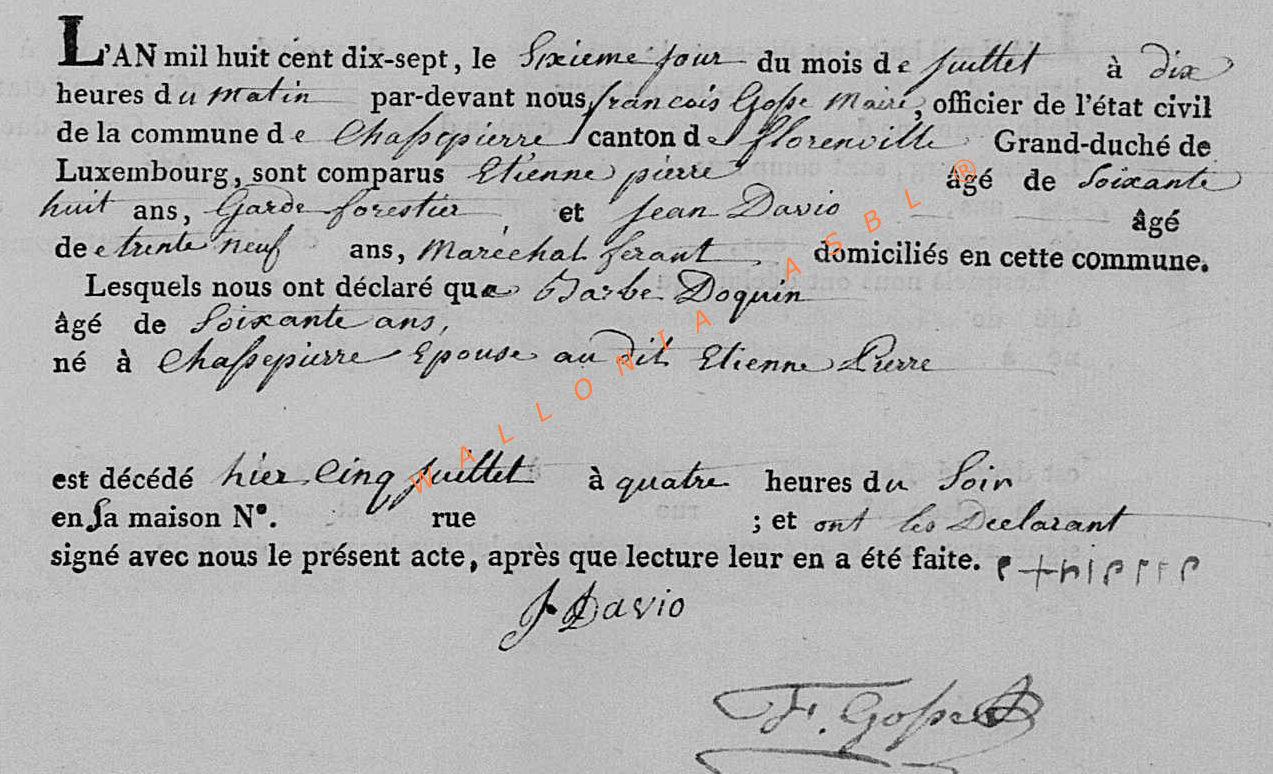 L'AN mil huit cent dix-sept, le Sixieme jour du mois de juillet à dix
heures du matin par-devant nous francois Gosse Maire, officier de l'état civil
de la commune de Chassepierre canton de florenville Grand-duché de
Luxembourg, sont comparus Etienne pierre âgé de Soixante
huit ans, Garde forestier et Jean Davio âgé
de trente neuf ans, Maréchal ferant domiciliés en cette commune.
Lesquels nous ont déclaré que Barbe Doquin
âgé de Soixante ans,
né à Chassepierre Epouse au dit Etienne Pierre
est décédé hier Cinq juillet à quatre heures du Soir
en Sa maison N°. rue ; et ont les Declarant
signé avec nous le présent acte, après que lecture leur en a été faite.
J Davio
F. Gosse
WALLONIA ASBL ®